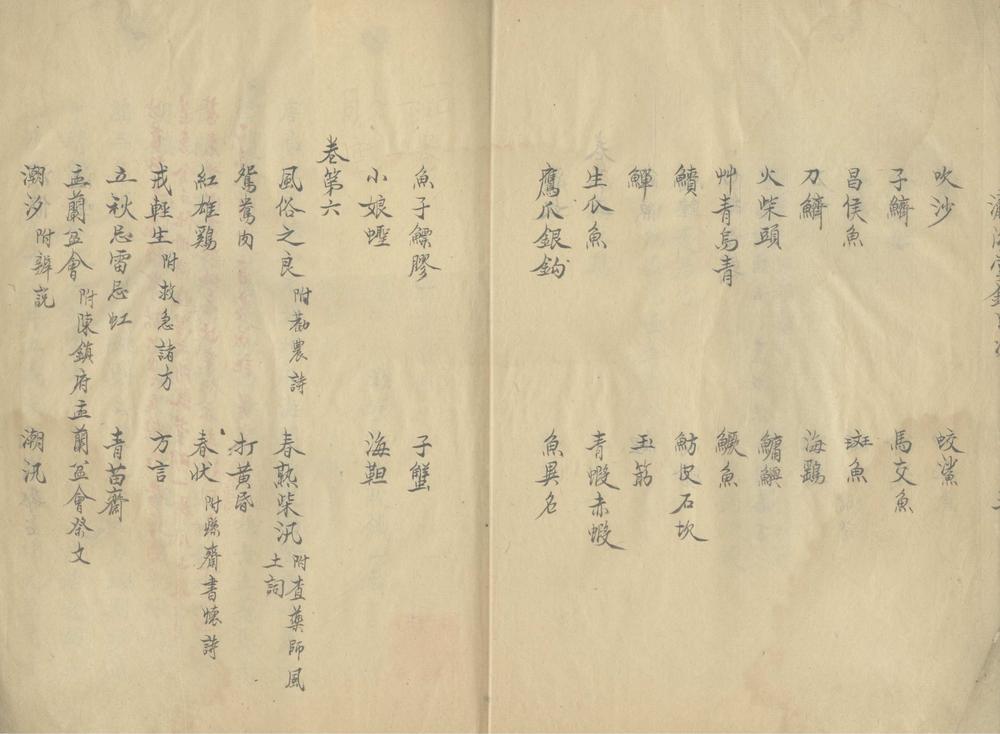 吹沙　蛟鯊
子鱭　馬交魚
昌侯魚　斑魚
刀鱭　海鷂
火柴頭　鱅鱮
艸青烏青　鱖魚
鱝　魴皮石坎
鱓　玉筯
生瓜魚　青蝦赤蝦
鷹爪銀鈎　魚異名
魚子鰾膠　子蟹
小娘蟶　海靼
卷第六
風俗之良 附勸農詩　春熟柴汛 附查藥師風土詞
鴛鴦肉　打黃昏
紅雄鷄　春狀 附縣齋書懷詩
戒輕生 附救急諸方　方言
立秋忌雷忌虹　青苗齋
盂蘭盆會 附陳鎮府盂蘭盆會祭文
潮汐 附辨說　潮汛